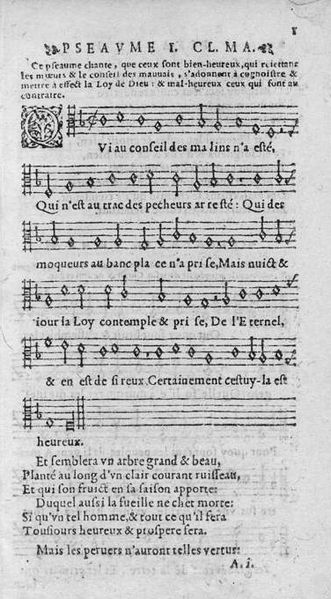 I
PSEAVME I. CL. MA.
Ce pseaume chante, que ceux sont bien-heureux, qui reiettans
les mœurs & le conseil des mauuais, s'adonnent à cognoistre &
mettre à effect la Loy de Dieu: & mal-heureux ceux qui font au
contraire.
QVi au conseil des ma lins n'a esté,
Qui n'est au trac des pecheurs ar resté: Qui des
moqueurs au banc pla ce n'a pri se, Mais nuict &
iour la Loy contemple & pri se, De l'E ternel,
& en est de si reux. Certainement cestuy-la est
heureux.
Et semblera vn arbre grand & beau,
Planté au long d'vn clair courant ruisseau,
Et qui son fruict en sa saison apporte:
Duquel aussi la fueille ne chet morte:
Si qu'vn tel homme, & tout ce qu'il fera
Tousiours heureux & prospere sera.
Mais les peruers n'auront telles vertus:
A. i.